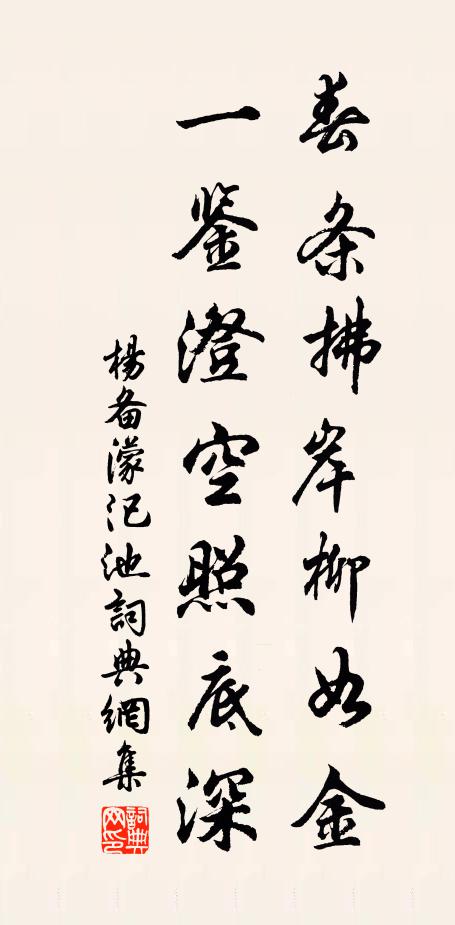 春条拂岸柳如金
一鉴澄空照底深
楊备濛汜池詞典網集
詞典網印